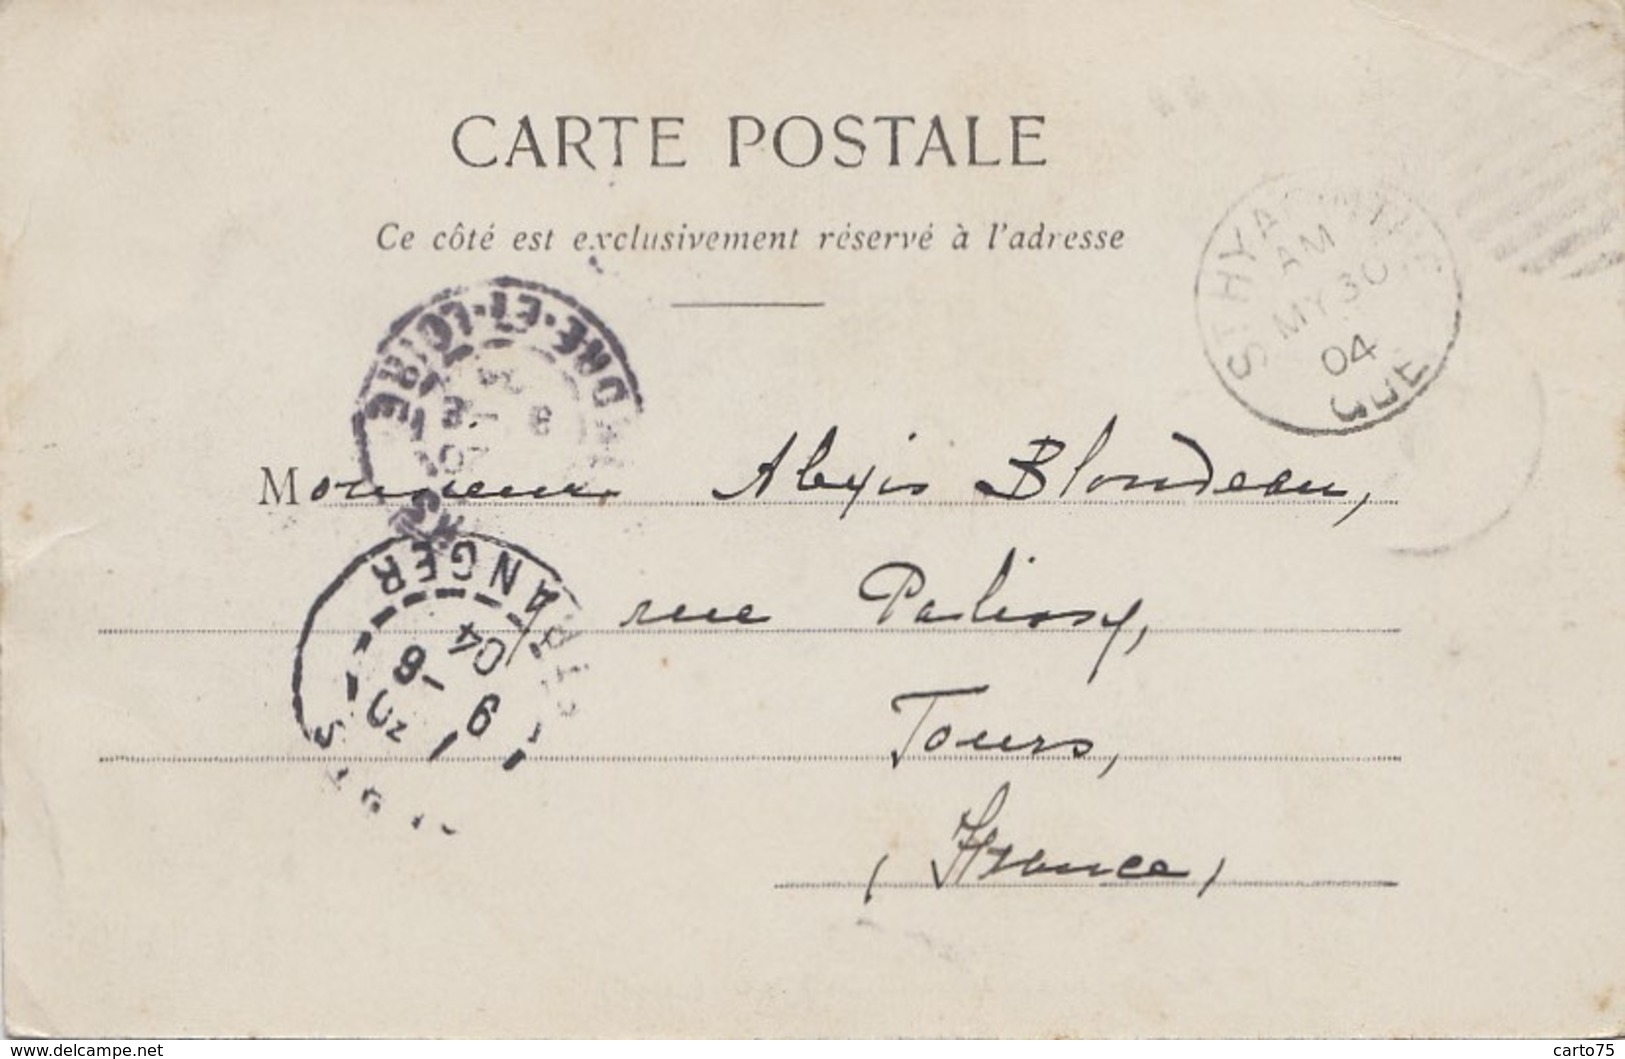 CARTE POSTALE
Ce côté est exclusivement réservé à l'adresse
ST HYACINTHE
AM
MY 30
04
QUE
ET·LOIRE
Monsieur Alexis Blondeau,
ANGER
04
rue Palissy,
Tours,
(France)
www.delcampe.net
carto75